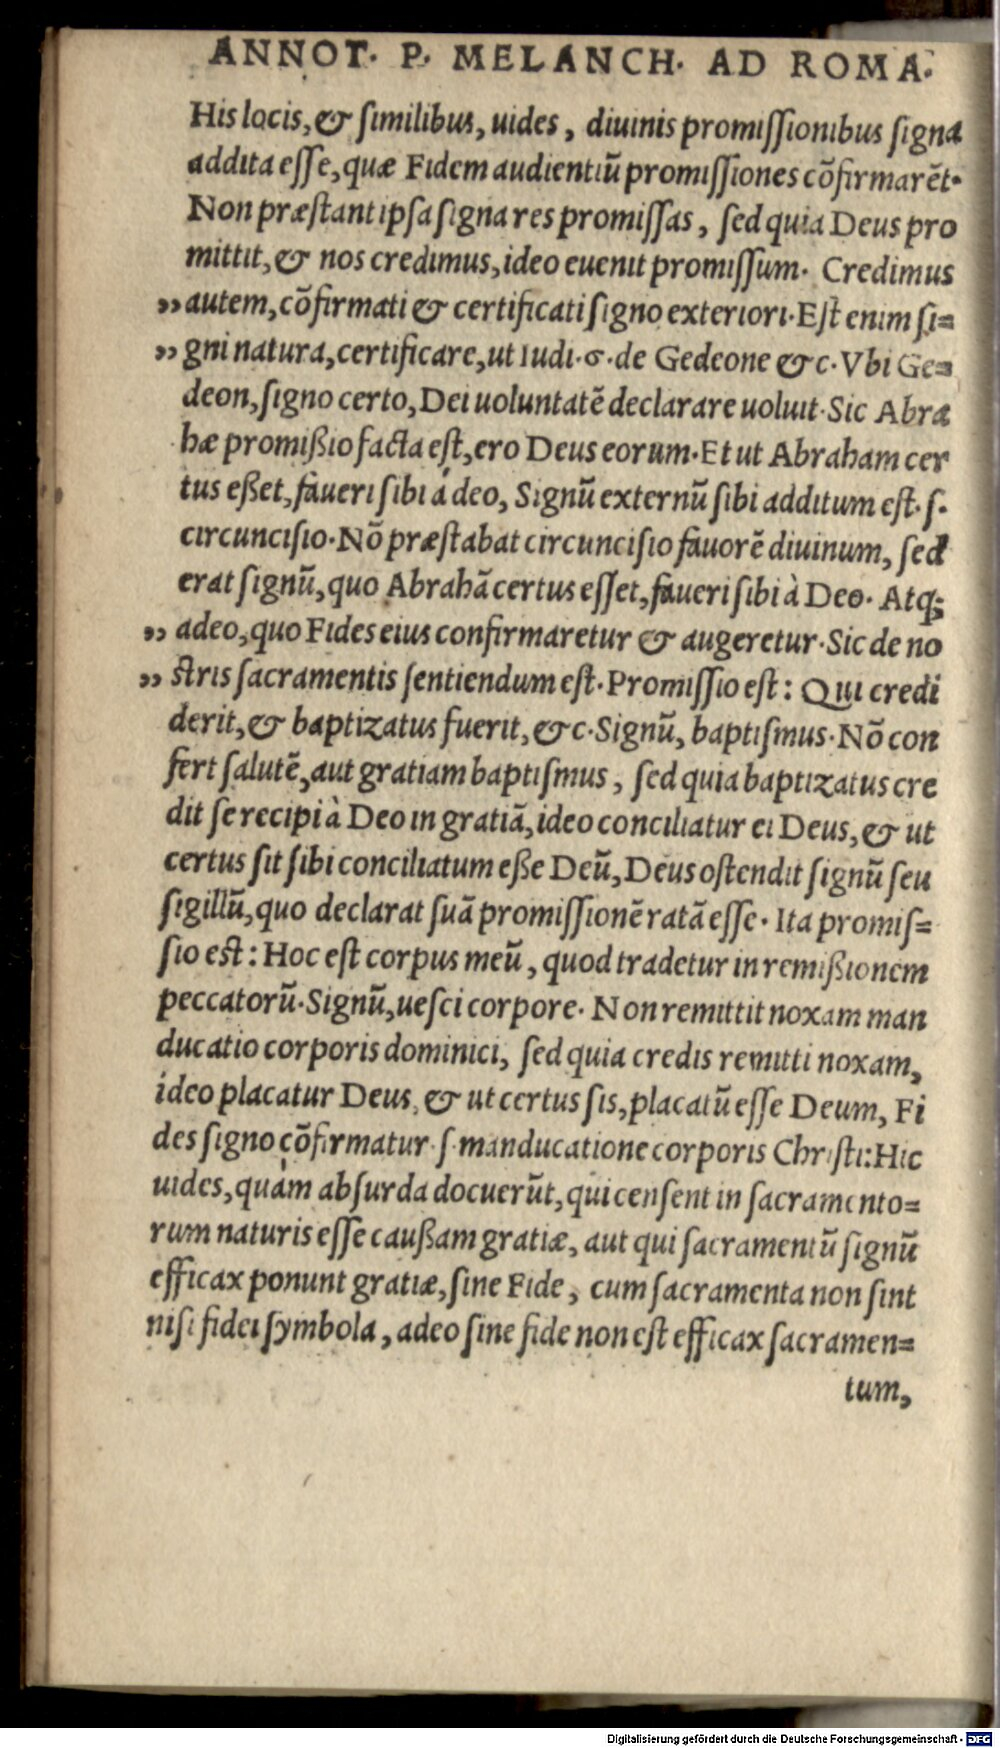 ANNOT. P. MELANCH. AD ROMA.
His locis, & ſimilibus, uides, diuinis promiſſionibus ſigna
addita eſſe, quæ Fidem audientiū promiſſiones cōfirmarēt.
Non præſtant ipſa ſigna res promiſſas, ſed quia Deus pro
mittit, & nos credimus, ideo euenit promiſſum. Credimus
„ autem, cōfirmati & certificati ſigno exteriori. Eſt enim ſi=
„ gni natura, certificare, ut Iudi. 6. de Gedeone & c. Vbi Ge=
deon, ſigno certo, Dei uoluntatē declarare uoluit. Sic Abra
hæ promißio facta eſt, ero Deus eorum. Et ut Abraham cer
tus eßet, faueri ſibi á deo, Signū externū ſibi additum eſt. ſ.
circunciſio. Nō præſtabat circunciſio fauorē diuinum, ſed
erat ſignū, quo Abrahā certus eſſet, faueri ſibi à Deo. Atq;
„ adeo, quo Fides eius confirmaretur & augeretur. Sic de no
„ ſtris ſacramentis ſentiendum eſt. Promiſſio eſt: Qui credi
derit, & baptizatus fuerit, & c. Signū, baptiſmus. Nō con
fert ſalutē, aut gratiam baptiſmus, ſed quia baptizatus cre
dit ſe recipi à Deo in gratiā, ideo conciliatur ei Deus, & ut
certus ſit ſibi conciliatum eße Deū, Deus oſtendit ſignū ſeu
ſigillū, quo declarat ſuā promiſſionē ratā eſſe. Ita promiſ=
ſio eſt: Hoc eſt corpus meū, quod tradetur in remißionem
peccatorū. Signū, ueſci corpore. Non remittit noxam man
ducatio corporis dominici, ſed quia credis remitti noxam,
ideo placatur Deus, & ut certus ſis, placatū eſſe Deum, Fi
des ſigno cōfirmatur. ſ. manducatione corporis Chriſti: Hic
uides, quám abſurda docuerūt, qui cenſent in ſacramento=
rum naturis eſſe caußam gratiæ, aut qui ſacramentū ſignū
efficax ponunt gratiæ, ſine Fide, cum ſacramenta non ſint
niſi fidei ſymbola, adeo ſine fide non eſt efficax ſacramen=
tum,
Digitalisierung gefördert durch die Deutsche Forschungsgemeinschaft - DFG